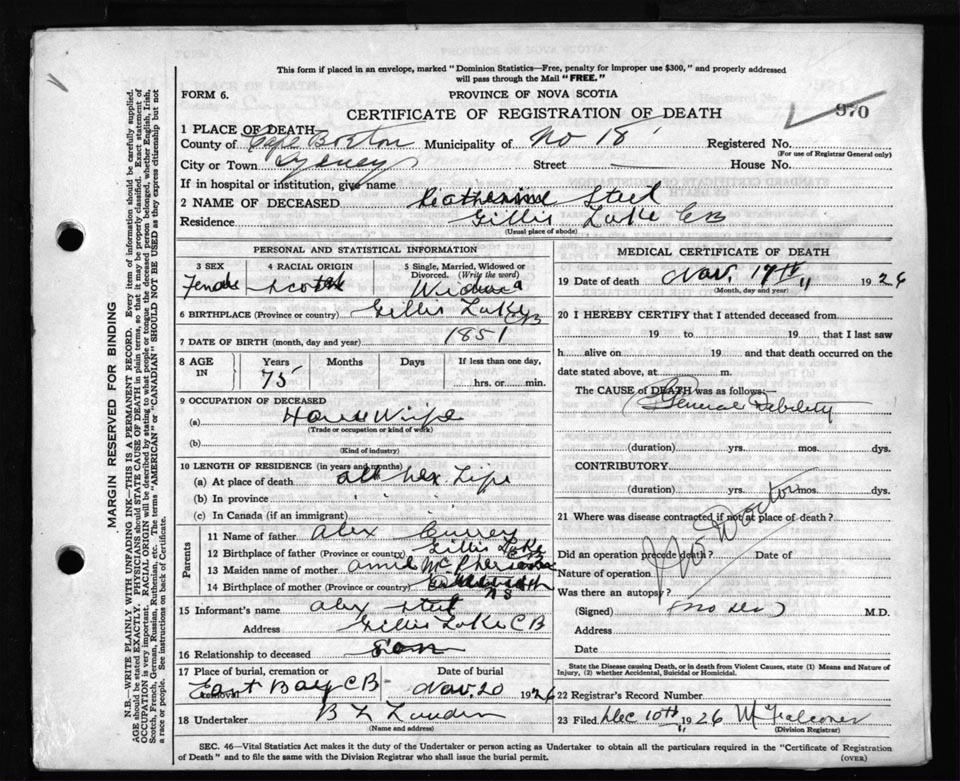 This form if placed in an envelope, marked "Dominion Statistics—Free, penalty for improper use $300," and properly addressed
will pass through the Mail "FREE."
FORM 6.
PROVINCE OF NOVA SCOTIA
CERTIFICATE OF REGISTRATION OF DEATH
970
1 PLACE OF DEATH
County of Cape Breton Municipality of No 18 Registered No.
(For use of Registrar General only)
City or Town Sydney Street House No.
If in hospital or institution, give name
2 NAME OF DECEASED Katherine Steel
Residence Gillis Lake CB
(Usual place of abode)
PERSONAL AND STATISTICAL INFORMATION
3 SEX
Female
4 RACIAL ORIGIN
Scotch
5 Single, Married, Widowed or
Divorced. (Write the word)
Widow
6 BIRTHPLACE (Province or country) Gillis Lake CB
7 DATE OF BIRTH (month, day and year) 1851
8 AGE IN
Years Months Days If less than one day,
75
hrs. or min.
9 OCCUPATION OF DECEASED
(a) House Wife
(Trade or occupation or kind of work)
(b)
(Kind of industry)
10 LENGTH OF RESIDENCE (in years and months)
(a) At place of death all her Life
(b) In province " "
(c) In Canada (if an immigrant) " "
Parents
11 Name of father Alex Currey
12 Birthplace of father (Province or country) Gillis Lake CB
13 Maiden name of mother Annie McPherson
14 Birthplace of mother (Province or country) NS
15 Informant's name Alex Steel
Address Gillis Lake CB
16 Relationship to deceased Son
17 Place of burial, cremation or removal
East Bay CB
Date of burial
Nov. 20 1926
18 Undertaker B L
(Name and address)
MEDICAL CERTIFICATE OF DEATH
19 Date of death Nov. 17th 1926
(Month, day and year)
20 I HEREBY CERTIFY that I attended deceased from
19 to 19 , that I last saw
h alive on 19 and that death occurred on the
date stated above, at m.
The CAUSE of DEATH was as follows:—
General Debility
(duration) yrs. mos. dys.
CONTRIBUTORY
(duration) yrs. mos. dys.
21 Where was disease contracted if not at place of death?
No Doctor
Did an operation precede death? Date of
Nature of operation
Was there an autopsy?
(Signed) M.D.
Address
Date
State the Disease causing Death, or in death from Violent Causes, state (1) Means and Nature of
Injury, (2) whether Accidental, Suicidal or Homicidal.
22 Registrar's Record Number
23 Filed Dec 10th 1926 M Falconer
(Division Registrar)
SEC. 46—Vital Statistics Act makes it the duty of the Undertaker or person acting as Undertaker to obtain all the particulars required in the "Certificate of Registration
of Death" and to file the same with the Division Registrar who shall issue the burial permit.
(OVER)
MARGIN RESERVED FOR BINDING
N.B.—WRITE PLAINLY WITH UNFADING INK—THIS IS A PERMANENT RECORD. Every item of information should be carefully supplied.
AGE should be stated EXACTLY. PHYSICIANS should STATE CAUSE OF DEATH in plain terms, so that it may be properly classified. Exact statement of
OCCUPATION is very important. RACIAL ORIGIN will be described by stating to what people or tongue the deceased person belonged, whether English, Irish,
Scotch, French, German, Russian, Ruthenian, etc. The terms "AMERICAN" or "CANADIAN" SHOULD NOT BE USED as they express citizenship but not
a race or people. See instructions on back of Certificate.